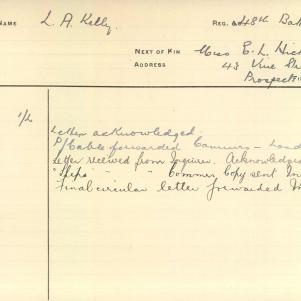 NAME L. A. Kelly. REG. No. 48th Bat
NEXT OF KIN Miss E. L. Hick
ADDRESS 43 Vine St
Prospect
1/2
Letter acknowledged.
P/Cable forwarded Commrs – Lond
Letter received from Inquirer. Acknowledged
"Ships" " " Commrs Copy sent In
Final circular letter forwarded In